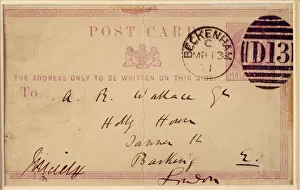 POST CARD
BECKENHAM
C
MR 13
71
D13
THE ADDRESS ONLY TO BE WRITTEN ON THIS SIDE.
HALF
To
A. R. Wallace Esq
Holly House
Tanner St
Barking E.
London